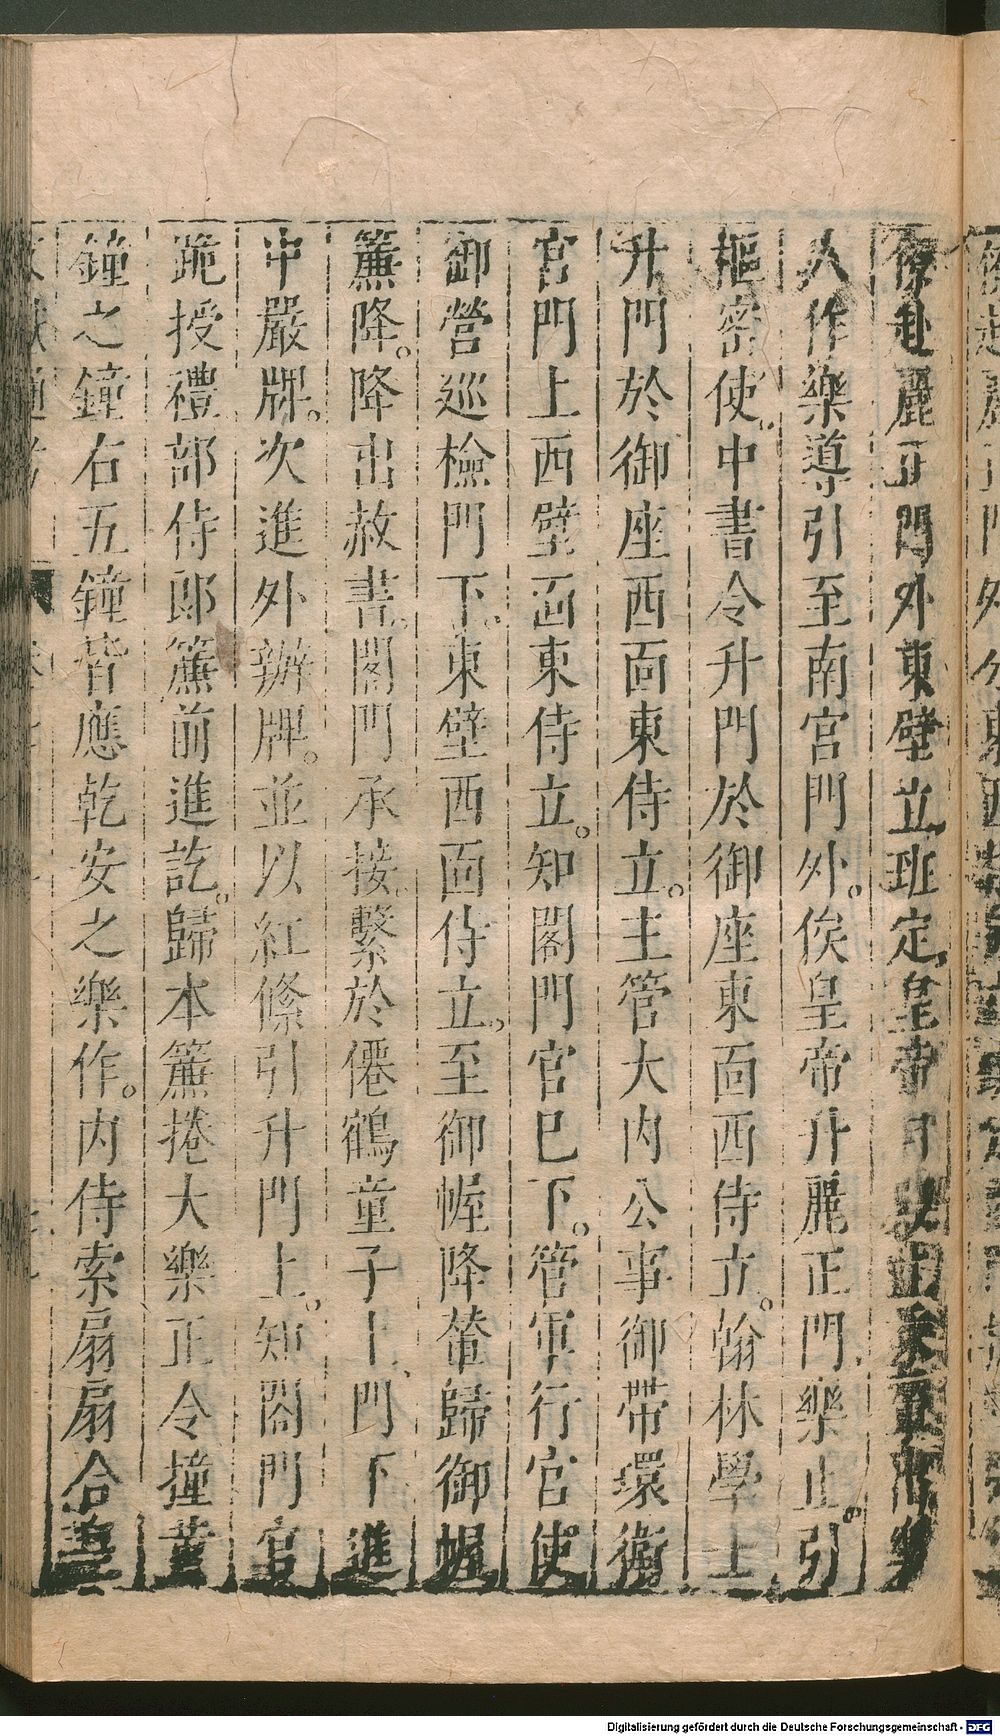 僚赴麗正門外東壁立班定皇帝自
人作樂導引至南宮門外。俟皇帝升麗正門,樂止。引
樞密使。中書令升門於御座東面西侍立。翰林學士
升門於御座西面東侍立。主管大內公事御帶環衛
官門上西壁面東侍立。知閤門官已下。管軍行官使
御營巡檢門下。東壁西面侍立,至御幄降輦歸御幄
簾降。降出赦書。閤門承接。繫於僊鶴童子上,門下進
中嚴牌。次進外辦牌。並以紅絛引升門上。知閤門官
跪授禮部侍郎簾前進訖。歸本簾捲大樂正令撞黃
鐘之鐘右五鐘皆應乾安之樂作。內侍索扇扇合
Digitalisierung gefördert durch die Deutsche Forschungsgemeinschaft - DFG